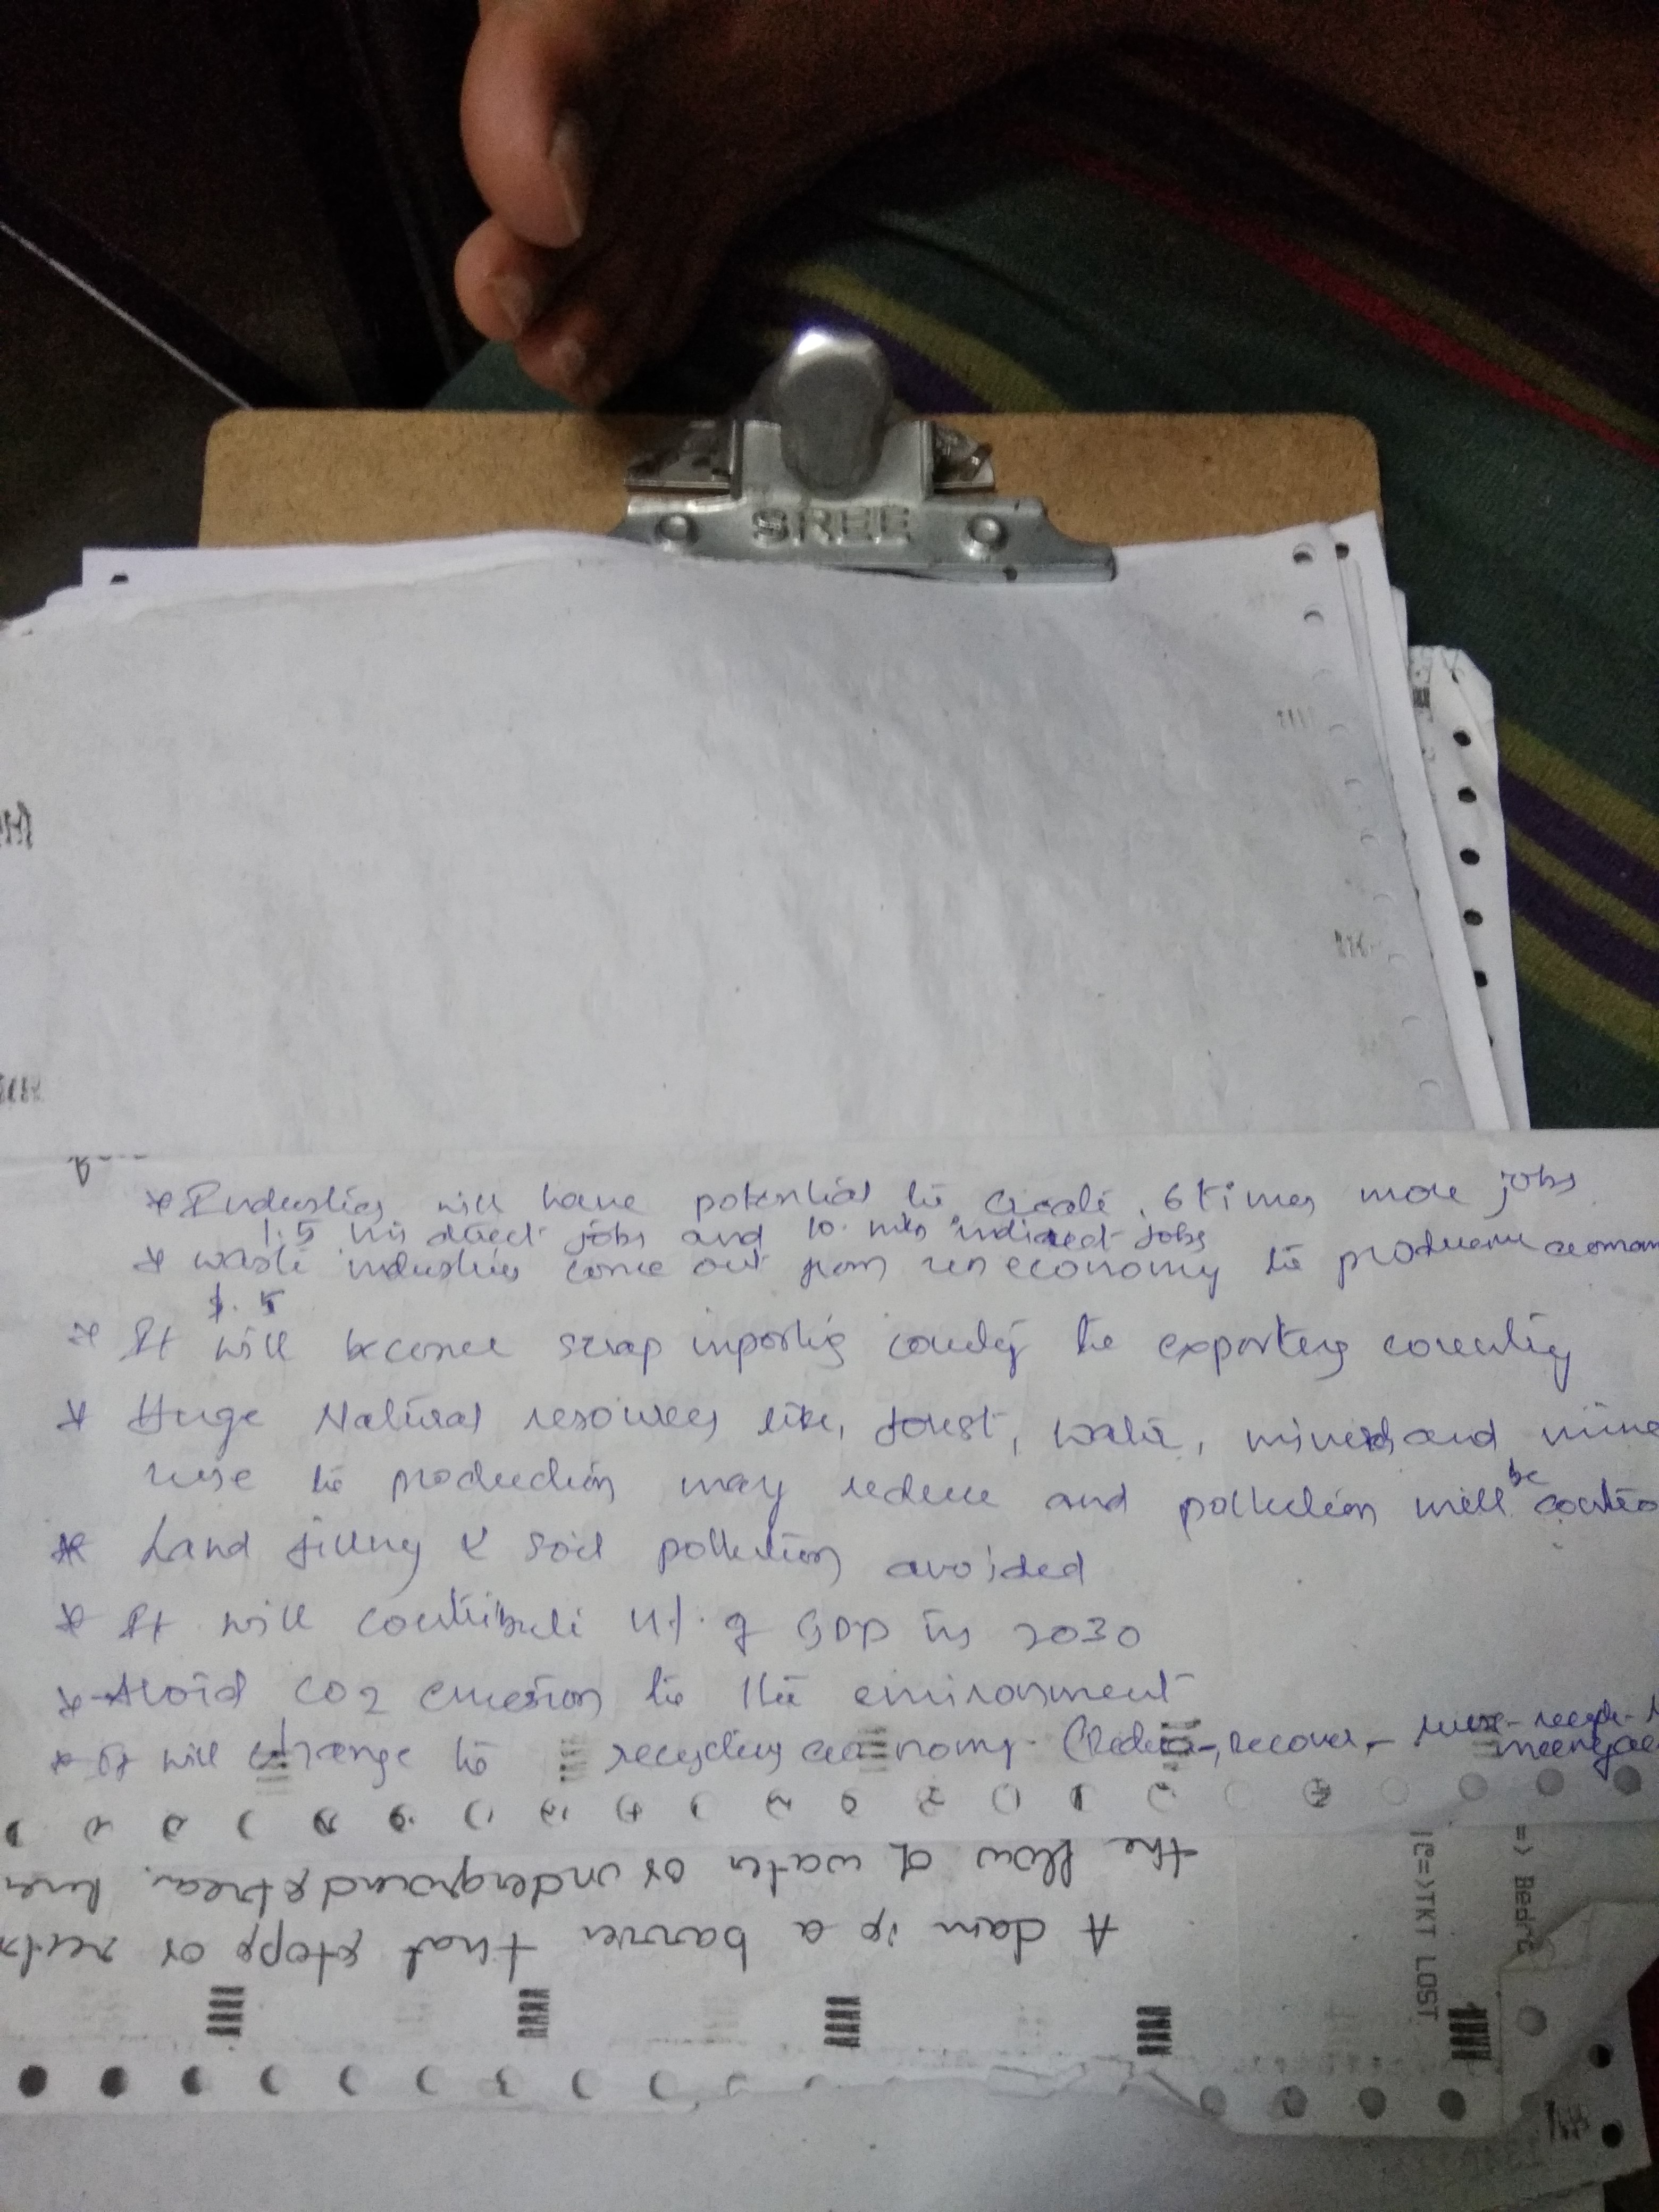 SREE
* Industries will have potential to create 6 times more jobs
1.5 direct jobs and 10 indirect jobs
* waste industries come out from economy to
1.5
* It will become scrap importing country to exporting country
* Huge Natural resources like, forest, water, and
use to production may reduce and pollution will be
* Land filling & soil pollution avoided
* It will contribute of GDP in 2030
* Avoid CO2 emission to the environment
* It will change to recycling economy. (Reduce, recover -
the flow of water or underground
A dam is a barrier that stops or
=> TKT LOST
=>